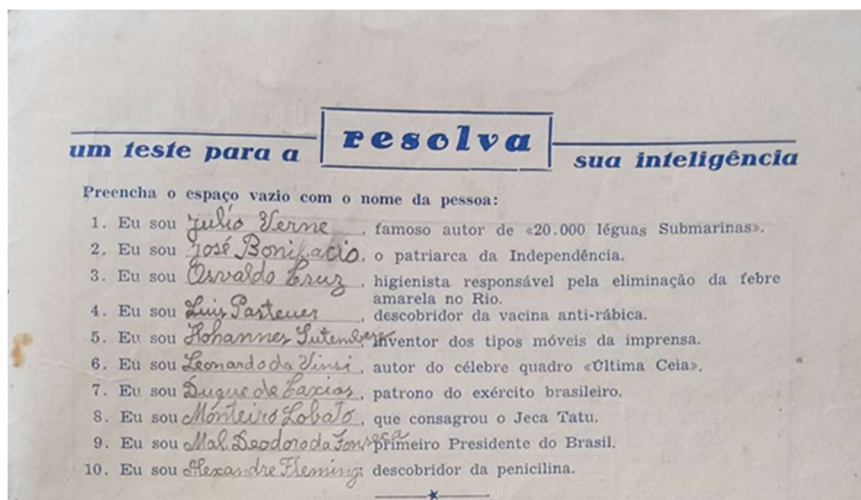 um teste para a resolva sua inteligência
Preencha o espaço vazio com o nome da pessoa:
1. Eu sou Julio Verne, famoso autor de «20.000 léguas Submarinas».
2. Eu sou José Bonifacio, o patriarca da Independência.
3. Eu sou Osvaldo Cruz, higienista responsável pela eliminação da febre
amarela no Rio.
4. Eu sou Luis Pasteuer, descobridor da vacina anti-rábica.
5. Eu sou Hohannes Gutemberg, inventor dos tipos móveis da imprensa.
6. Eu sou Leonardo da Vinsi, autor do célebre quadro «Última Ceia».
7. Eu sou Duque de Caxias, patrono do exército brasileiro.
8. Eu sou Monteiro Lobato, que consagrou o Jeca Tatu.
9. Eu sou Mal. Deodoro da Fonseca primeiro Presidente do Brasil.
10. Eu sou Alexandre Fleming, descobridor da penicilina.